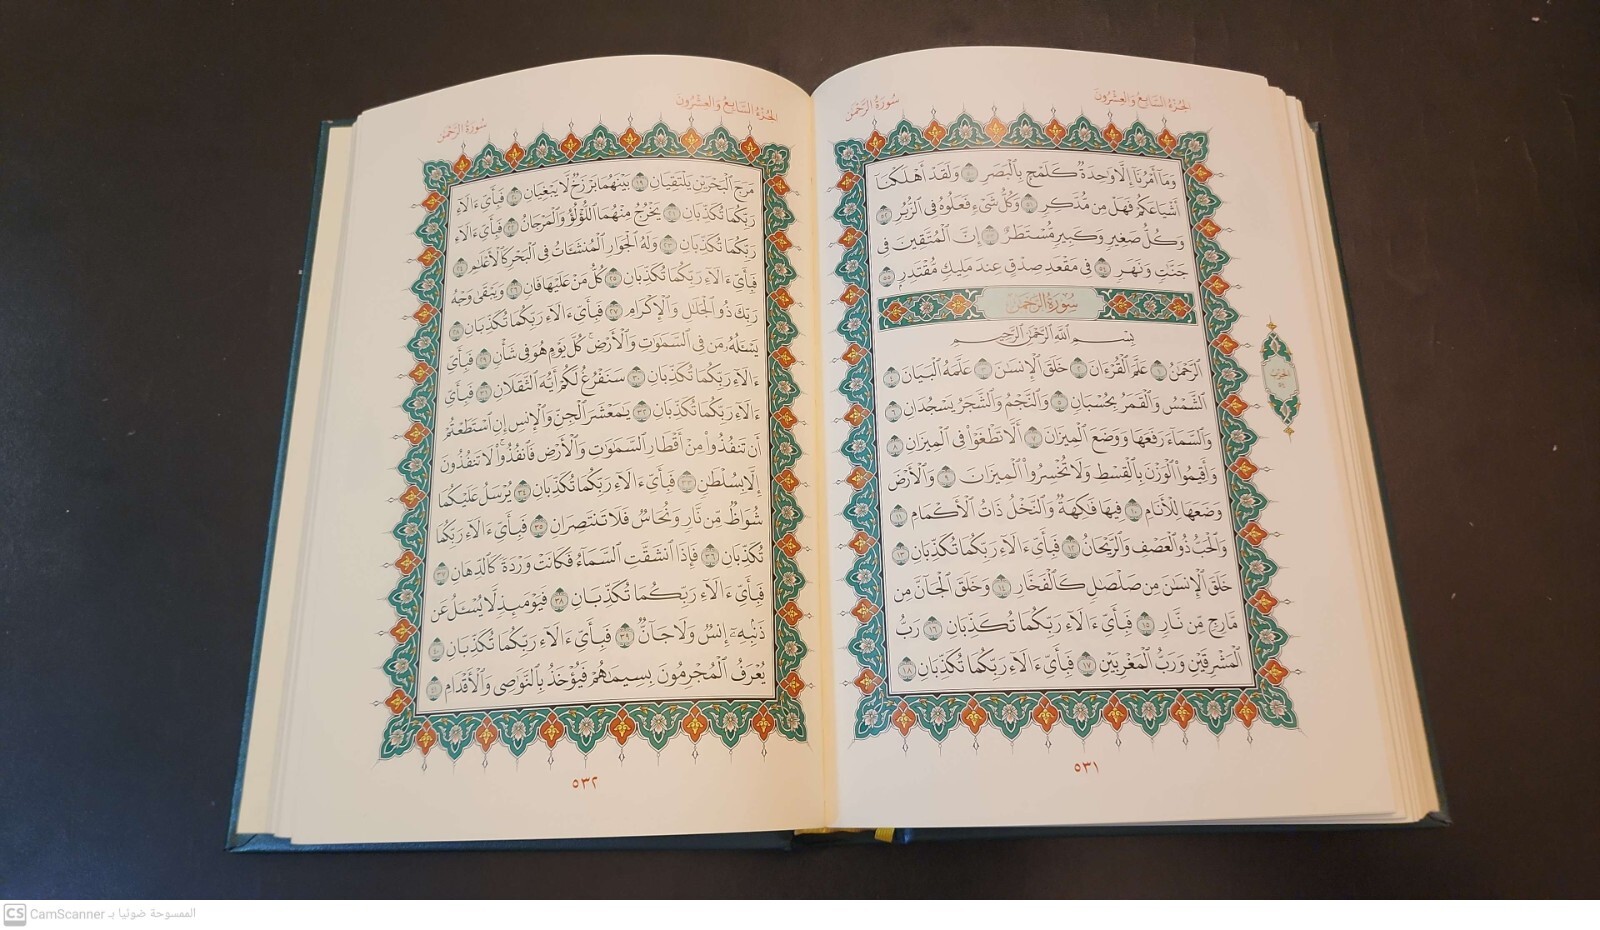 سُورَةُ الرَّحْمَٰن
الجُزْءُ السَّابِعُ وَالعِشْرُونَ
وَمَآ أَمْرُنَآ إِلَّا وَٰحِدَةٌ كَلَمْحٍۭ بِٱلْبَصَرِ ٥٠ وَلَقَدْ أَهْلَكْنَآ
أَشْيَاعَكُمْ فَهَلْ مِن مُّدَّكِرٍ ٥١ وَكُلُّ شَىْءٍ فَعَلُوهُ فِى ٱلزُّبُرِ ٥٢
وَكُلُّ صَغِيرٍ وَكَبِيرٍ مُّسْتَطَرٌ ٥٣ إِنَّ ٱلْمُتَّقِينَ فِى
جَنَّٰتٍ وَنَهَرٍ ٥٤ فِى مَقْعَدِ صِدْقٍ عِندَ مَلِيكٍ مُّقْتَدِرٍۭ ٥٥
سُورَةُ الرَّحْمَٰن
بِسْمِ ٱللَّهِ ٱلرَّحْمَٰنِ ٱلرَّحِيمِ
ٱلرَّحْمَٰنُ ١ عَلَّمَ ٱلْقُرْءَانَ ٢ خَلَقَ ٱلْإِنسَٰنَ ٣ عَلَّمَهُ ٱلْبَيَانَ ٤
ٱلشَّمْسُ وَٱلْقَمَرُ بِحُسْبَانٍ ٥ وَٱلنَّجْمُ وَٱلشَّجَرُ يَسْجُدَانِ ٦
وَٱلسَّمَآءَ رَفَعَهَا وَوَضَعَ ٱلْمِيزَانَ ٧ أَلَّا تَطْغَوْا۟ فِى ٱلْمِيزَانِ ٨
وَأَقِيمُوا۟ ٱلْوَزْنَ بِٱلْقِسْطِ وَلَا تُخْسِرُوا۟ ٱلْمِيزَانَ ٩ وَٱلْأَرْضَ
وَضَعَهَا لِلْأَنَامِ ١٠ فِيهَا فَٰكِهَةٌ وَٱلنَّخْلُ ذَاتُ ٱلْأَكْمَامِ ١١
وَٱلْحَبُّ ذُو ٱلْعَصْفِ وَٱلرَّيْحَانُ ١٢ فَبِأَىِّ ءَالَآءِ رَبِّكُمَا تُكَذِّبَانِ ١٣
خَلَقَ ٱلْإِنسَٰنَ مِن صَلْصَٰلٍ كَٱلْفَخَّارِ ١٤ وَخَلَقَ ٱلْجَآنَّ مِن
مَّارِجٍ مِّن نَّارٍ ١٥ فَبِأَىِّ ءَالَآءِ رَبِّكُمَا تُكَذِّبَانِ ١٦ رَبُّ
ٱلْمَشْرِقَيْنِ وَرَبُّ ٱلْمَغْرِبَيْنِ ١٧ فَبِأَىِّ ءَالَآءِ رَبِّكُمَا تُكَذِّبَانِ ١٨
الحزب
٥٤
٥٣١
سُورَةُ الرَّحْمَٰن
الجُزْءُ السَّابِعُ وَالعِشْرُونَ
مَرَجَ ٱلْبَحْرَيْنِ يَلْتَقِيَانِ ١٩ بَيْنَهُمَا بَرْزَخٌ لَّا يَبْغِيَانِ ٢٠ فَبِأَىِّ ءَالَآءِ
رَبِّكُمَا تُكَذِّبَانِ ٢١ يَخْرُجُ مِنْهُمَا ٱللُّؤْلُؤُ وَٱلْمَرْجَانُ ٢٢ فَبِأَىِّ ءَالَآءِ
رَبِّكُمَا تُكَذِّبَانِ ٢٣ وَلَهُ ٱلْجَوَارِ ٱلْمُنشَـَٔاتُ فِى ٱلْبَحْرِ كَٱلْأَعْلَٰمِ ٢٤
فَبِأَىِّ ءَالَآءِ رَبِّكُمَا تُكَذِّبَانِ ٢٥ كُلُّ مَنْ عَلَيْهَا فَانٍ ٢٦ وَيَبْقَىٰ وَجْهُ
رَبِّكَ ذُو ٱلْجَلَٰلِ وَٱلْإِكْرَامِ ٢٧ فَبِأَىِّ ءَالَآءِ رَبِّكُمَا تُكَذِّبَانِ ٢٨
يَسْـَٔلُهُۥ مَن فِى ٱلسَّمَٰوَٰتِ وَٱلْأَرْضِ ۚ كُلَّ يَوْمٍ هُوَ فِى شَأْنٍ ٢٩ فَبِأَىِّ
ءَالَآءِ رَبِّكُمَا تُكَذِّبَانِ ٣٠ سَنَفْرُغُ لَكُمْ أَيُّهَ ٱلثَّقَلَانِ ٣١ فَبِأَىِّ
ءَالَآءِ رَبِّكُمَا تُكَذِّبَانِ ٣٢ يَٰمَعْشَرَ ٱلْجِنِّ وَٱلْإِنسِ إِنِ ٱسْتَطَعْتُمْ
أَن تَنفُذُوا۟ مِنْ أَقْطَارِ ٱلسَّمَٰوَٰتِ وَٱلْأَرْضِ فَٱنفُذُوا۟ ۚ لَا تَنفُذُونَ
إِلَّا بِسُلْطَٰنٍ ٣٣ فَبِأَىِّ ءَالَآءِ رَبِّكُمَا تُكَذِّبَانِ ٣٤ يُرْسَلُ عَلَيْكُمَا
شُوَاظٌ مِّن نَّارٍ وَنُحَاسٌ فَلَا تَنتَصِرَانِ ٣٥ فَبِأَىِّ ءَالَآءِ رَبِّكُمَا
تُكَذِّبَانِ ٣٦ فَإِذَا ٱنشَقَّتِ ٱلسَّمَآءُ فَكَانَتْ وَرْدَةً كَٱلدِّهَانِ ٣٧
فَبِأَىِّ ءَالَآءِ رَبِّكُمَا تُكَذِّبَانِ ٣٨ فَيَوْمَئِذٍ لَّا يُسْـَٔلُ عَن
ذَنۢبِهِۦٓ إِنسٌ وَلَا جَآنٌّ ٣٩ فَبِأَىِّ ءَالَآءِ رَبِّكُمَا تُكَذِّبَانِ ٤٠
يُعْرَفُ ٱلْمُجْرِمُونَ بِسِيمَٰهُمْ فَيُؤْخَذُ بِٱلنَّوَٰصِى وَٱلْأَقْدَامِ ٤١
٥٣٢
CS CamScanner الممسوحة ضوئيا بـ